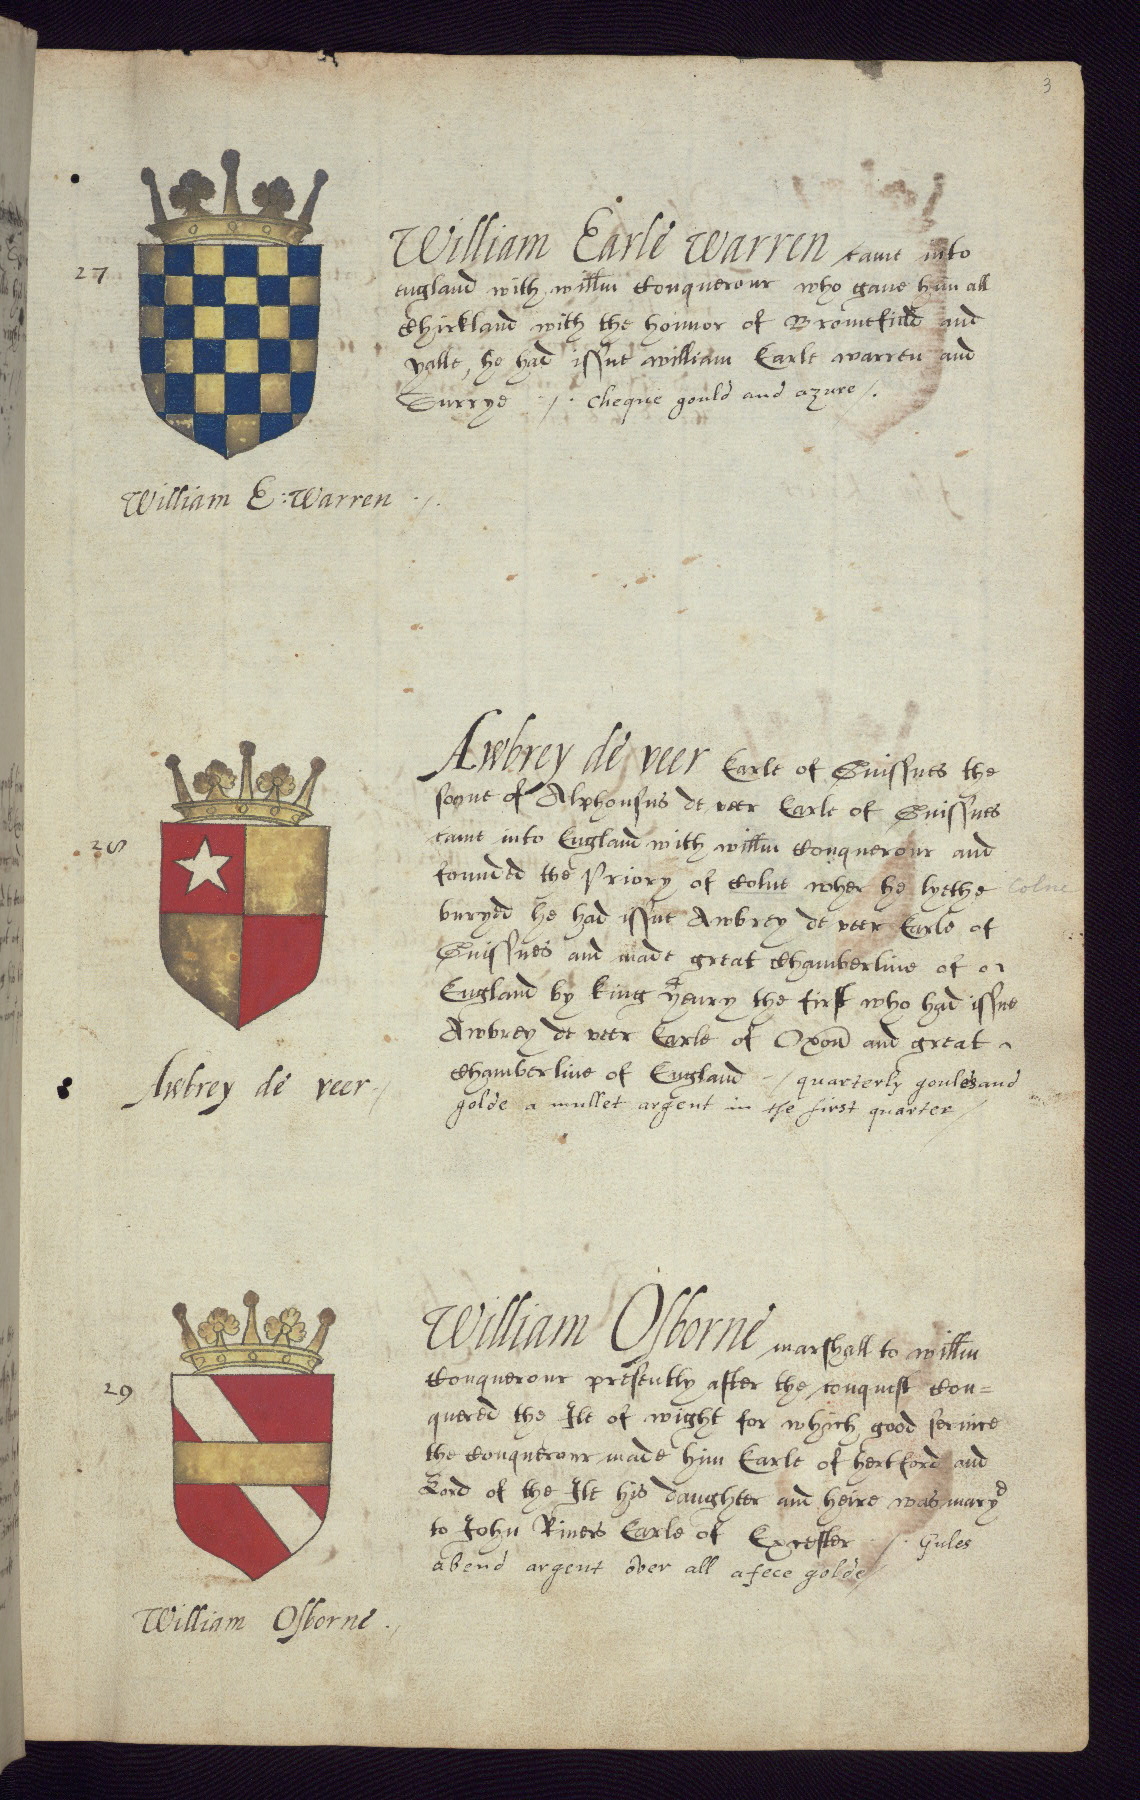 3
27
William Earle Warren came into
england with willm Conquerour who gaue him all
Chirkland with the honnor of Bromefield and
yalle, he had issue william Earle warren and
Surrye ·/· cheqùie gould and azure /.
William E: Warren ·/.
28
Awbrey de veer Earle of Guissnes the
soyne of Alphonsus de veer Earle of Guissnes
came into England with willm Conquerour and
founded the Priory of Colne wher he lyethe
Colne
buryed he had issue Awbrey de veer Earle of
Guissnes and made great Chamberline of
England by king Henry the first who had issue
Awbrey de veer Earle of Oxon and great
Chamberline of England -/ quarterly goules and
golde a mullet argent in the first quarter /
Awbrey de veer -/
29
William Osborne marshall to willm
Conquerour presently after the conquest Con=
quered the Ile of wight for which good seruice
the Conquerour made him Earle of hertford and
Lord of the Ile his daughter and heire was maryd
to John Riuers Earle of Excester ·/· Gules
abend argent over all a fece golde /
William Osborne ./